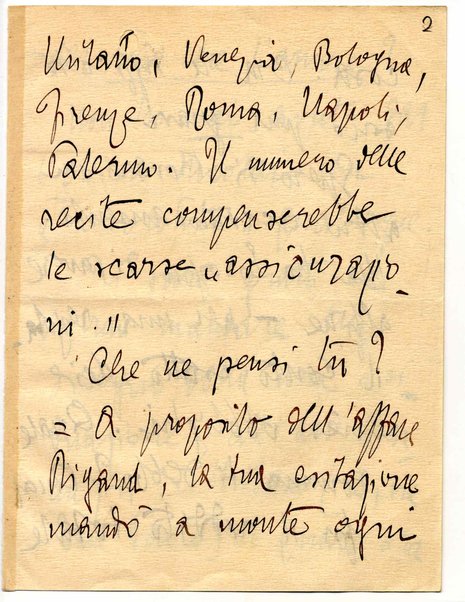 2
Milano, Venezia, Bologna,
Firenze, Roma, Napoli,
Palermo. Il numero delle
recite compenserebbe
le scarse „assicurazio-
ni."
Che ne pensi tu?
= A proposito dell'affare
Rigaud, la tua esitazione
mandò a monte ogni